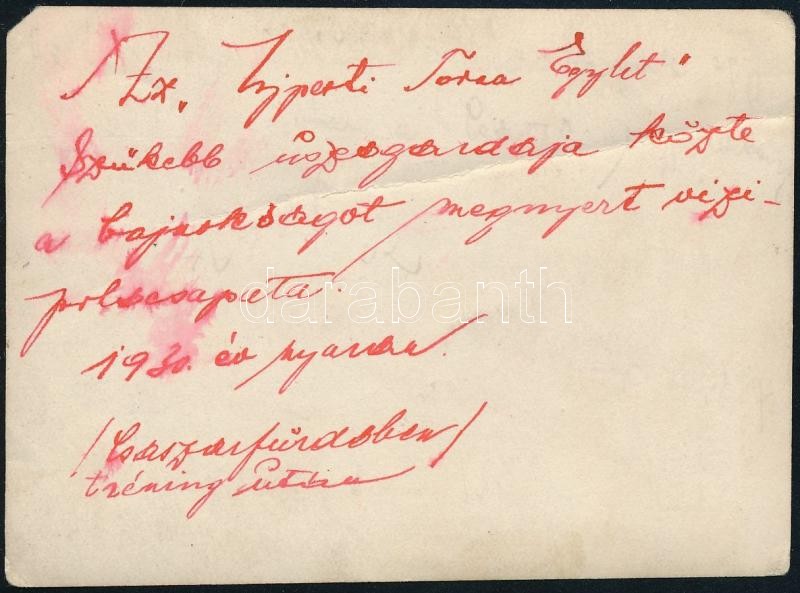 Az „Ujpesti Torna Egylet"
szükebb úszógardája közte
a bajnokságot megnyert vizi-
polocsapata.
1930. év nyarán.
/Császárfürdőben/
tréning után
darabanth